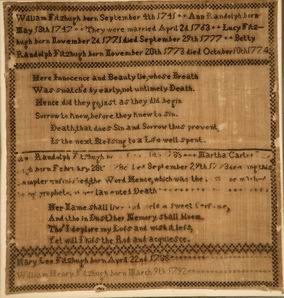 William Fitzhugh born September 4th 1741 Ann Randolph born
May 13th 1747 They were married April 2d 1763 Lucy Fitz-
hugh born November 2d 1771 died September 29th 1777 Betty
Randolph Fitzhugh born November 20th 1773 died October 10th 1774
Here Innocence and Beauty lie, whose Breath
Was snatch'd by early, not untimely Death.
Hence did they go, just as they did begin
Sorrow to know, before they knew to sin.
Death, that does Sin and Sorrow thus prevent
Is the next Blessing to a Life well spent.
Randolph Martha
born February
sampler the Word Hence, which was the
Death
Her Name shall a sweet
And tho in Dust her Memory shall bloom.
Tho' I deplore my Loss and wish it less,
Yet will I kiss the Rod and acquiesce.
Mary Lee Fitzhugh born April 22d 1788
William Henry Fitzhugh born March 9th 1792